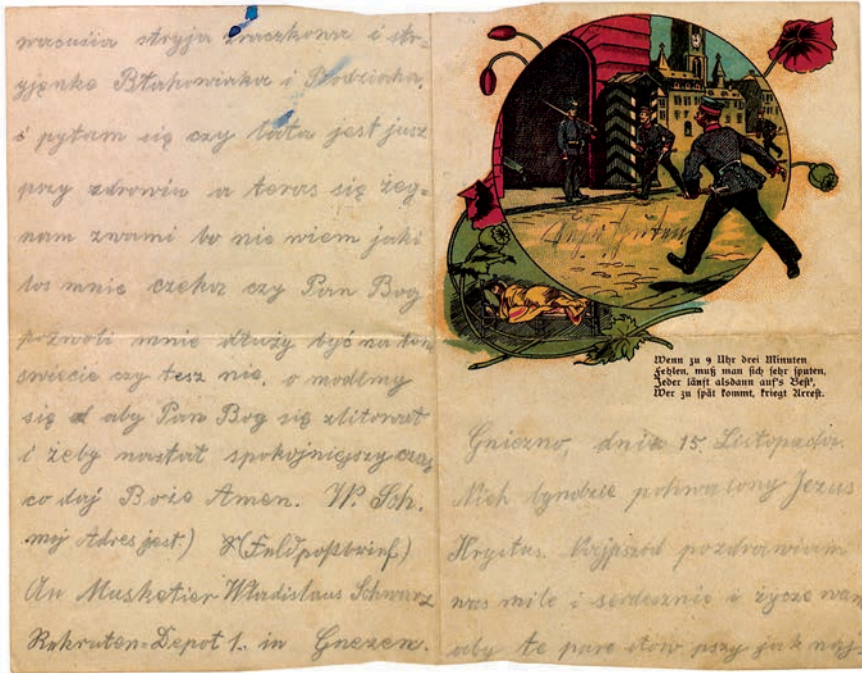 wacusia stryja Znaczkowa i stry-
yjenke Błahowiaka i Bodziaka.
i pytam się czy tata jest jusz
pszy zdrowiu a teras się żeg-
nam zwami bo nie wiem jaki
los mnie czeka czy Pan Bog
pozwoli mnie dłuży być na tem
swiecie czy tesz nie. o modlmy
się aby Pan Bog się zlitował
i żeby nastał spokojniejszy czas
co daj Boże Amen. W. Sch.
moj Adres jest) (Feldpostbrief)
An Musketier Władislaus Schwarz
Rekruten-Depot 1. in Gnezen.
Wenn zu 9 Uhr drei Minuten
Fehlen, muß man sich sehr sputen,
Jeder läuft alsdann auf's Best',
Wer zu spät kommt, kriegt Arrest.
Gniezno, dnia 15. Listopada.
Niech byndzie pohwalony Jezus
Hrystus. Najpszod pozdrawiam
was mile i serdecznie i życze wam
aby te pare słow pszy jak naj-